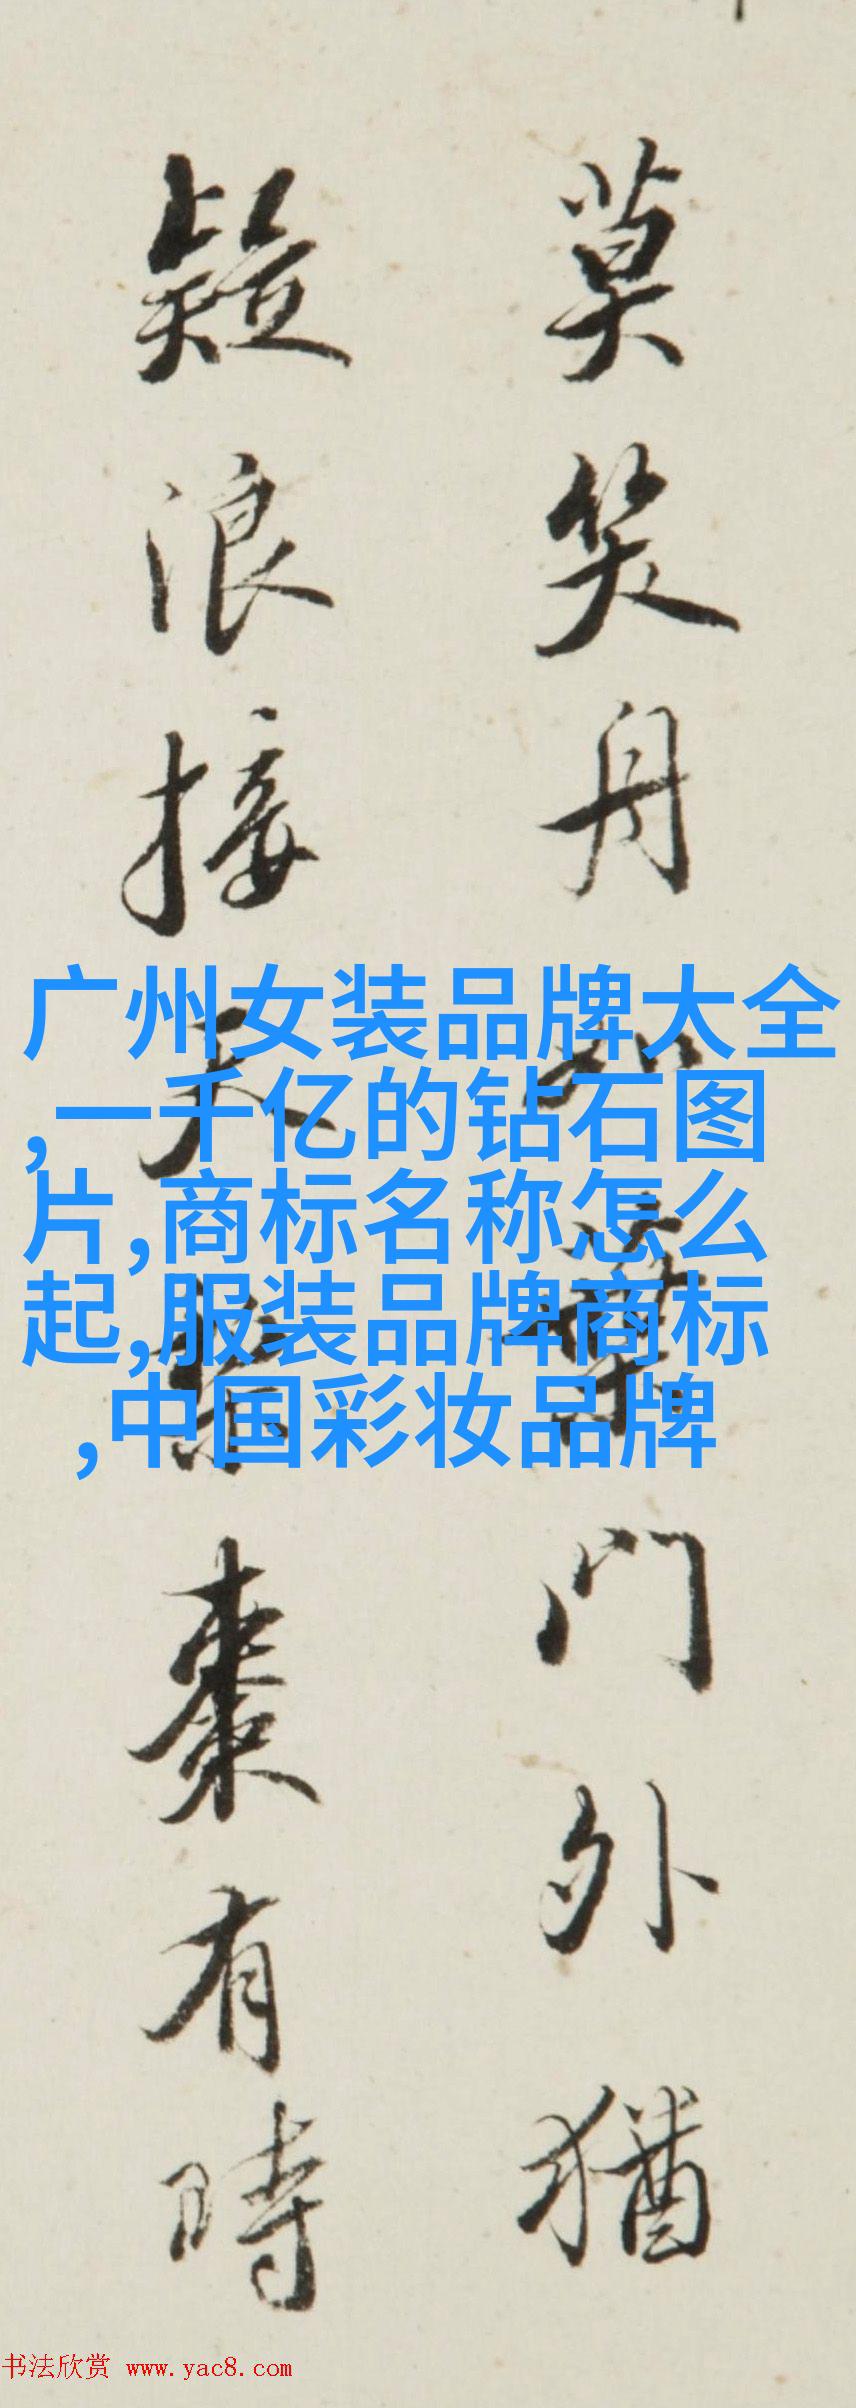 莫笑舟如葉門外猶
疑浪接天棗有時
广州女装品牌大全
,一千亿的钻石图
片,商标名称怎么
起,服装品牌商标
,中国彩妆品牌
书法欣赏 www.yac8.com